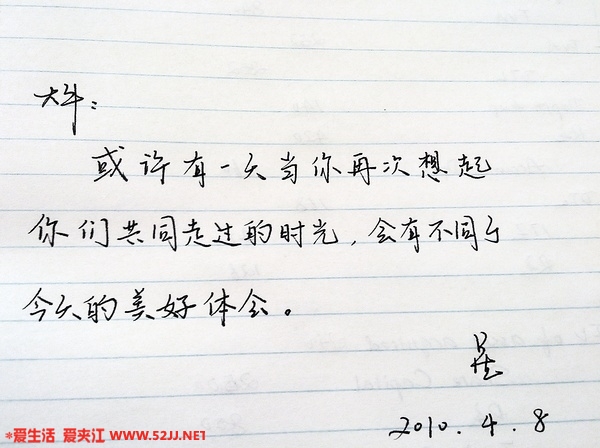 大牛：
或许有一天当你再次想起
你们共同走过的时光，会有不同于
今天的美好体会。
2010.4.8
*爱生活 爱夹江 WWW.52JJ.NET